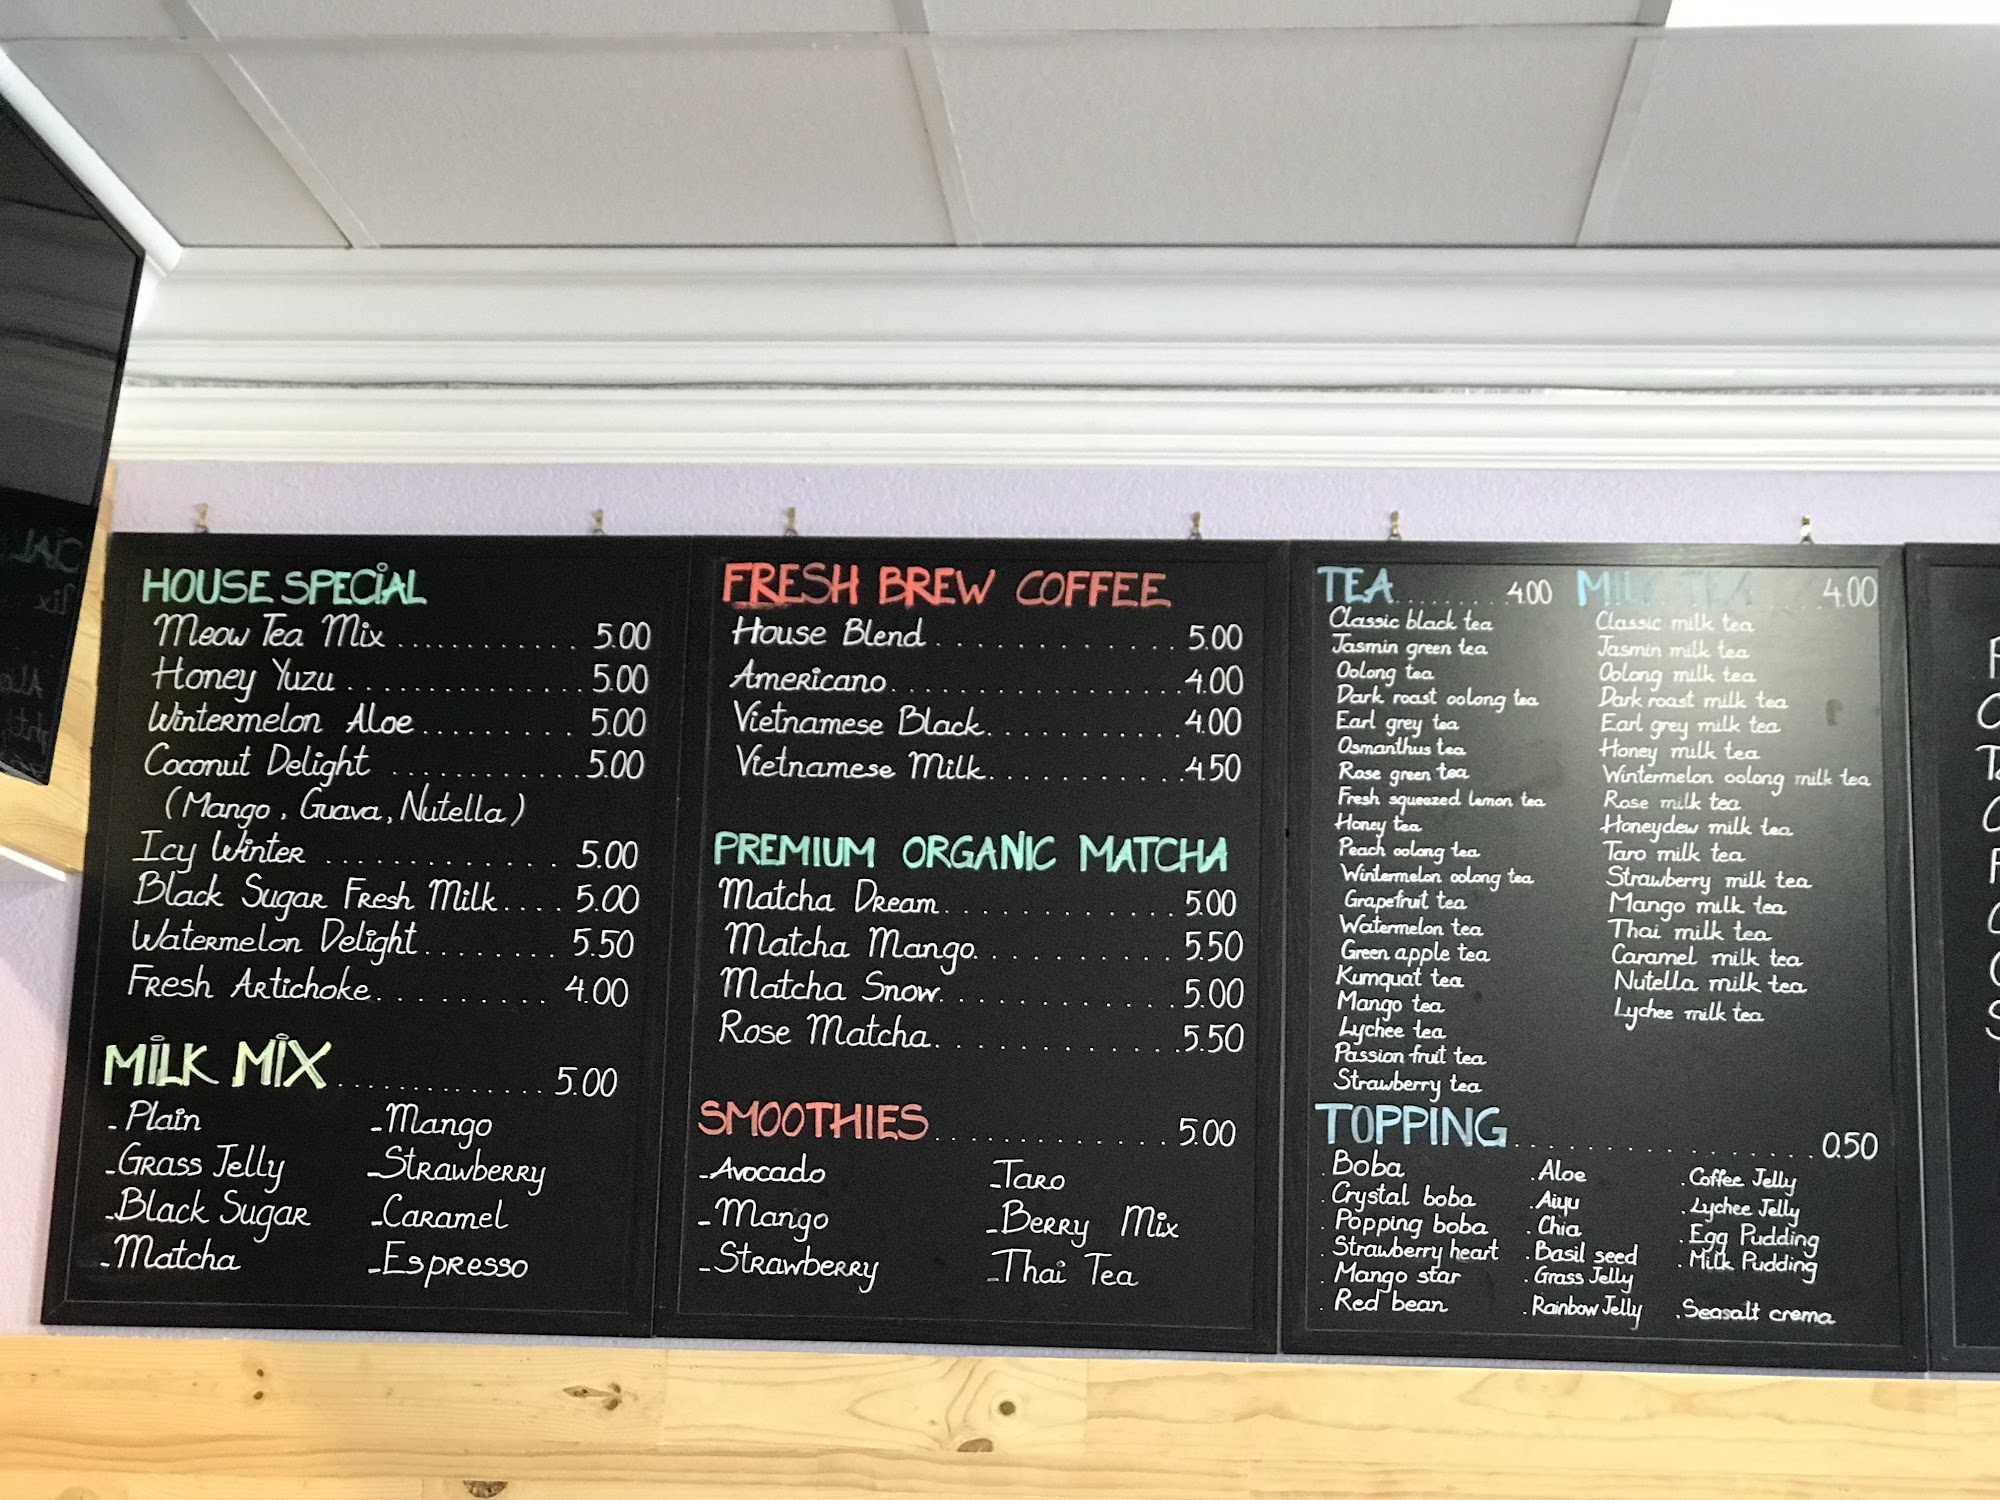 HOUSE SPECIAL
Meow Tea Mix .................. 5.00
Honey Yuzu .................. 5.00
Wintermelon Aloe ............. 5.00
Coconut Delight ............. 5.00
(Mango, Guava, Nutella)
Icy Winter ............. 5.00
Black Sugar Fresh Milk .... 5.00
Watermelon Delight ........ 5.50
Fresh Artichoke .......... 4.00
MILK MIX ............. 5.00
- Plain
- Grass Jelly
- Black Sugar
- Matcha
- Mango
- Strawberry
- Caramel
- Espresso
FRESH BREW COFFEE
House Blend ............. 5.00
Americano ............... 4.00
Vietnamese Black ........... 4.00
Vietnamese Milk ........... 4.50
PREMIUM ORGANIC MATCHA
Matcha Dream ............. 5.00
Matcha Mango ............ 5.50
Matcha Snow ............. 5.00
Rose Matcha ............. 5.50
SMOOTHIES ............. 5.00
- Avocado
- Mango
- Strawberry
- Taro
- Berry Mix
- Thai Tea
TEA ......... 4.00
Classic black tea
Jasmin green tea
Oolong tea
Dark roast oolong tea
Earl grey tea
Osmanthus tea
Rose green tea
Fresh squeezed lemon tea
Honey tea
Peach oolong tea
Wintermelon oolong tea
Grapefruit tea
Watermelon tea
Green apple tea
Kumquat tea
Mango tea
Lychee tea
Passion fruit tea
Strawberry tea
MILK TEA .... 4.00
Classic milk tea
Jasmin milk tea
Oolong milk tea
Dark roast milk tea
Earl grey milk tea
Honey milk tea
Wintermelon oolong milk tea
Rose milk tea
Honeydew milk tea
Taro milk tea
Strawberry milk tea
Mango milk tea
Thai milk tea
Caramel milk tea
Nutella milk tea
Lychee milk tea
TOPPING ................. 0.50
. Boba
. Crystal boba
. Popping boba
. Strawberry heart
. Mango star
. Red bean
. Aloe
. Aiyu
. Chia
. Basil seed
. Grass Jelly
. Rainbow Jelly
. Coffee Jelly
. Lychee Jelly
. Egg Pudding
. Milk Pudding
. Seasalt crema